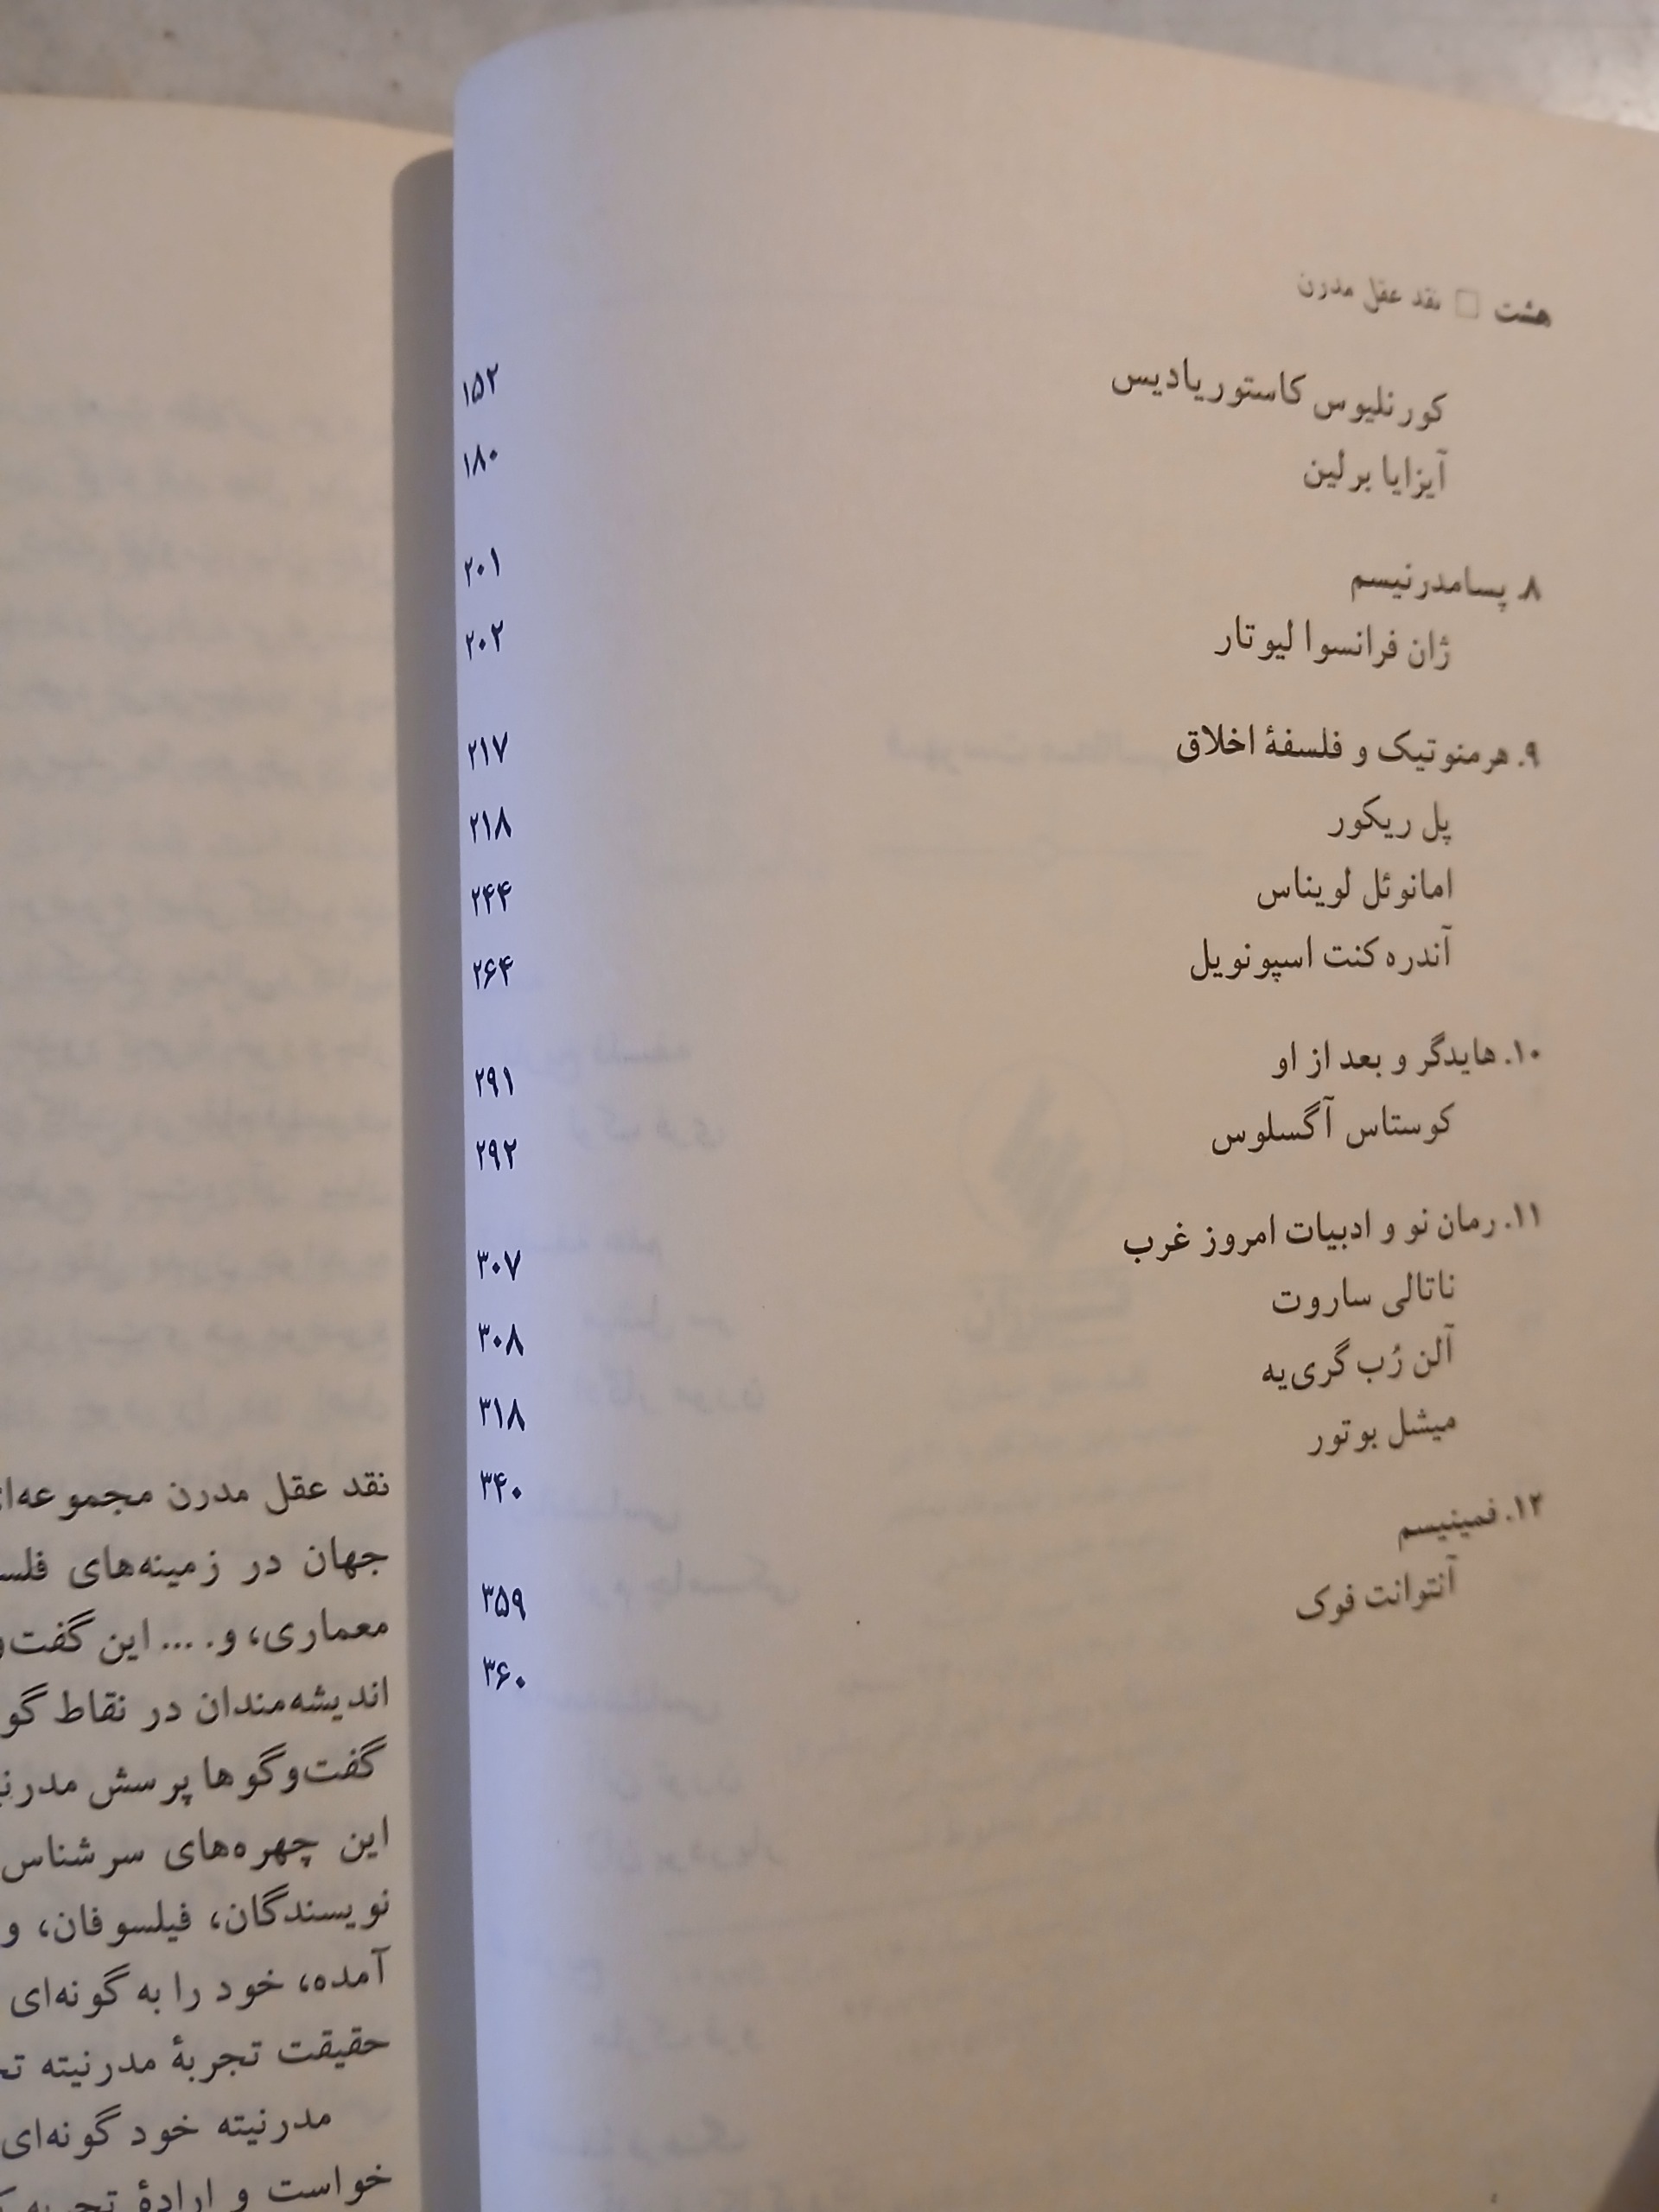 هشت □ نقد عقل مدرن
کورنلیوس کاستوریادیس ۱۵۲
آیزایا برلین ۱۸۰
۸. پسامدرنیسم ۲۰۱
ژان فرانسوا لیوتار ۲۰۲
۹. هرمنوتیک و فلسفهٔ اخلاق ۲۱۷
پل ریکور ۲۱۸
امانوئل لویناس ۲۴۴
آندره کنت اسپونویل ۲۶۴
۱۰. هایدگر و بعد از او ۲۹۱
کوستاس آگسلوس ۲۹۲
۱۱. رمان نو و ادبیات امروز غرب ۳۰۷
ناتالی ساروت ۳۰۸
آلن رُب گری‌یه ۳۱۸
میشل بوتور ۳۴۰
۱۲. فمینیسم ۳۵۹
آنتوانت فوک ۳۶۰
نقد عقل مدرن
جهان در زمینه‌های
معماری، و. ... این
اندیشه‌مندان در نقاط
گفت‌وگوها پرسش
این چهره‌های سرشناس
نویسندگان، فیلسوفان، و
آمده، خود را به گونه‌ای
حقیقت تجربهٔ مدرنیته
مدرنیته خود گونه‌ای
خواست و ارادهٔ